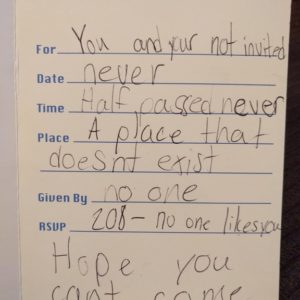 For You and your not invited
Date never
Time Half passed never
Place A place that
doesnt exist
Given By no one
RSVP 208- no one likes you
Hope you
cant come